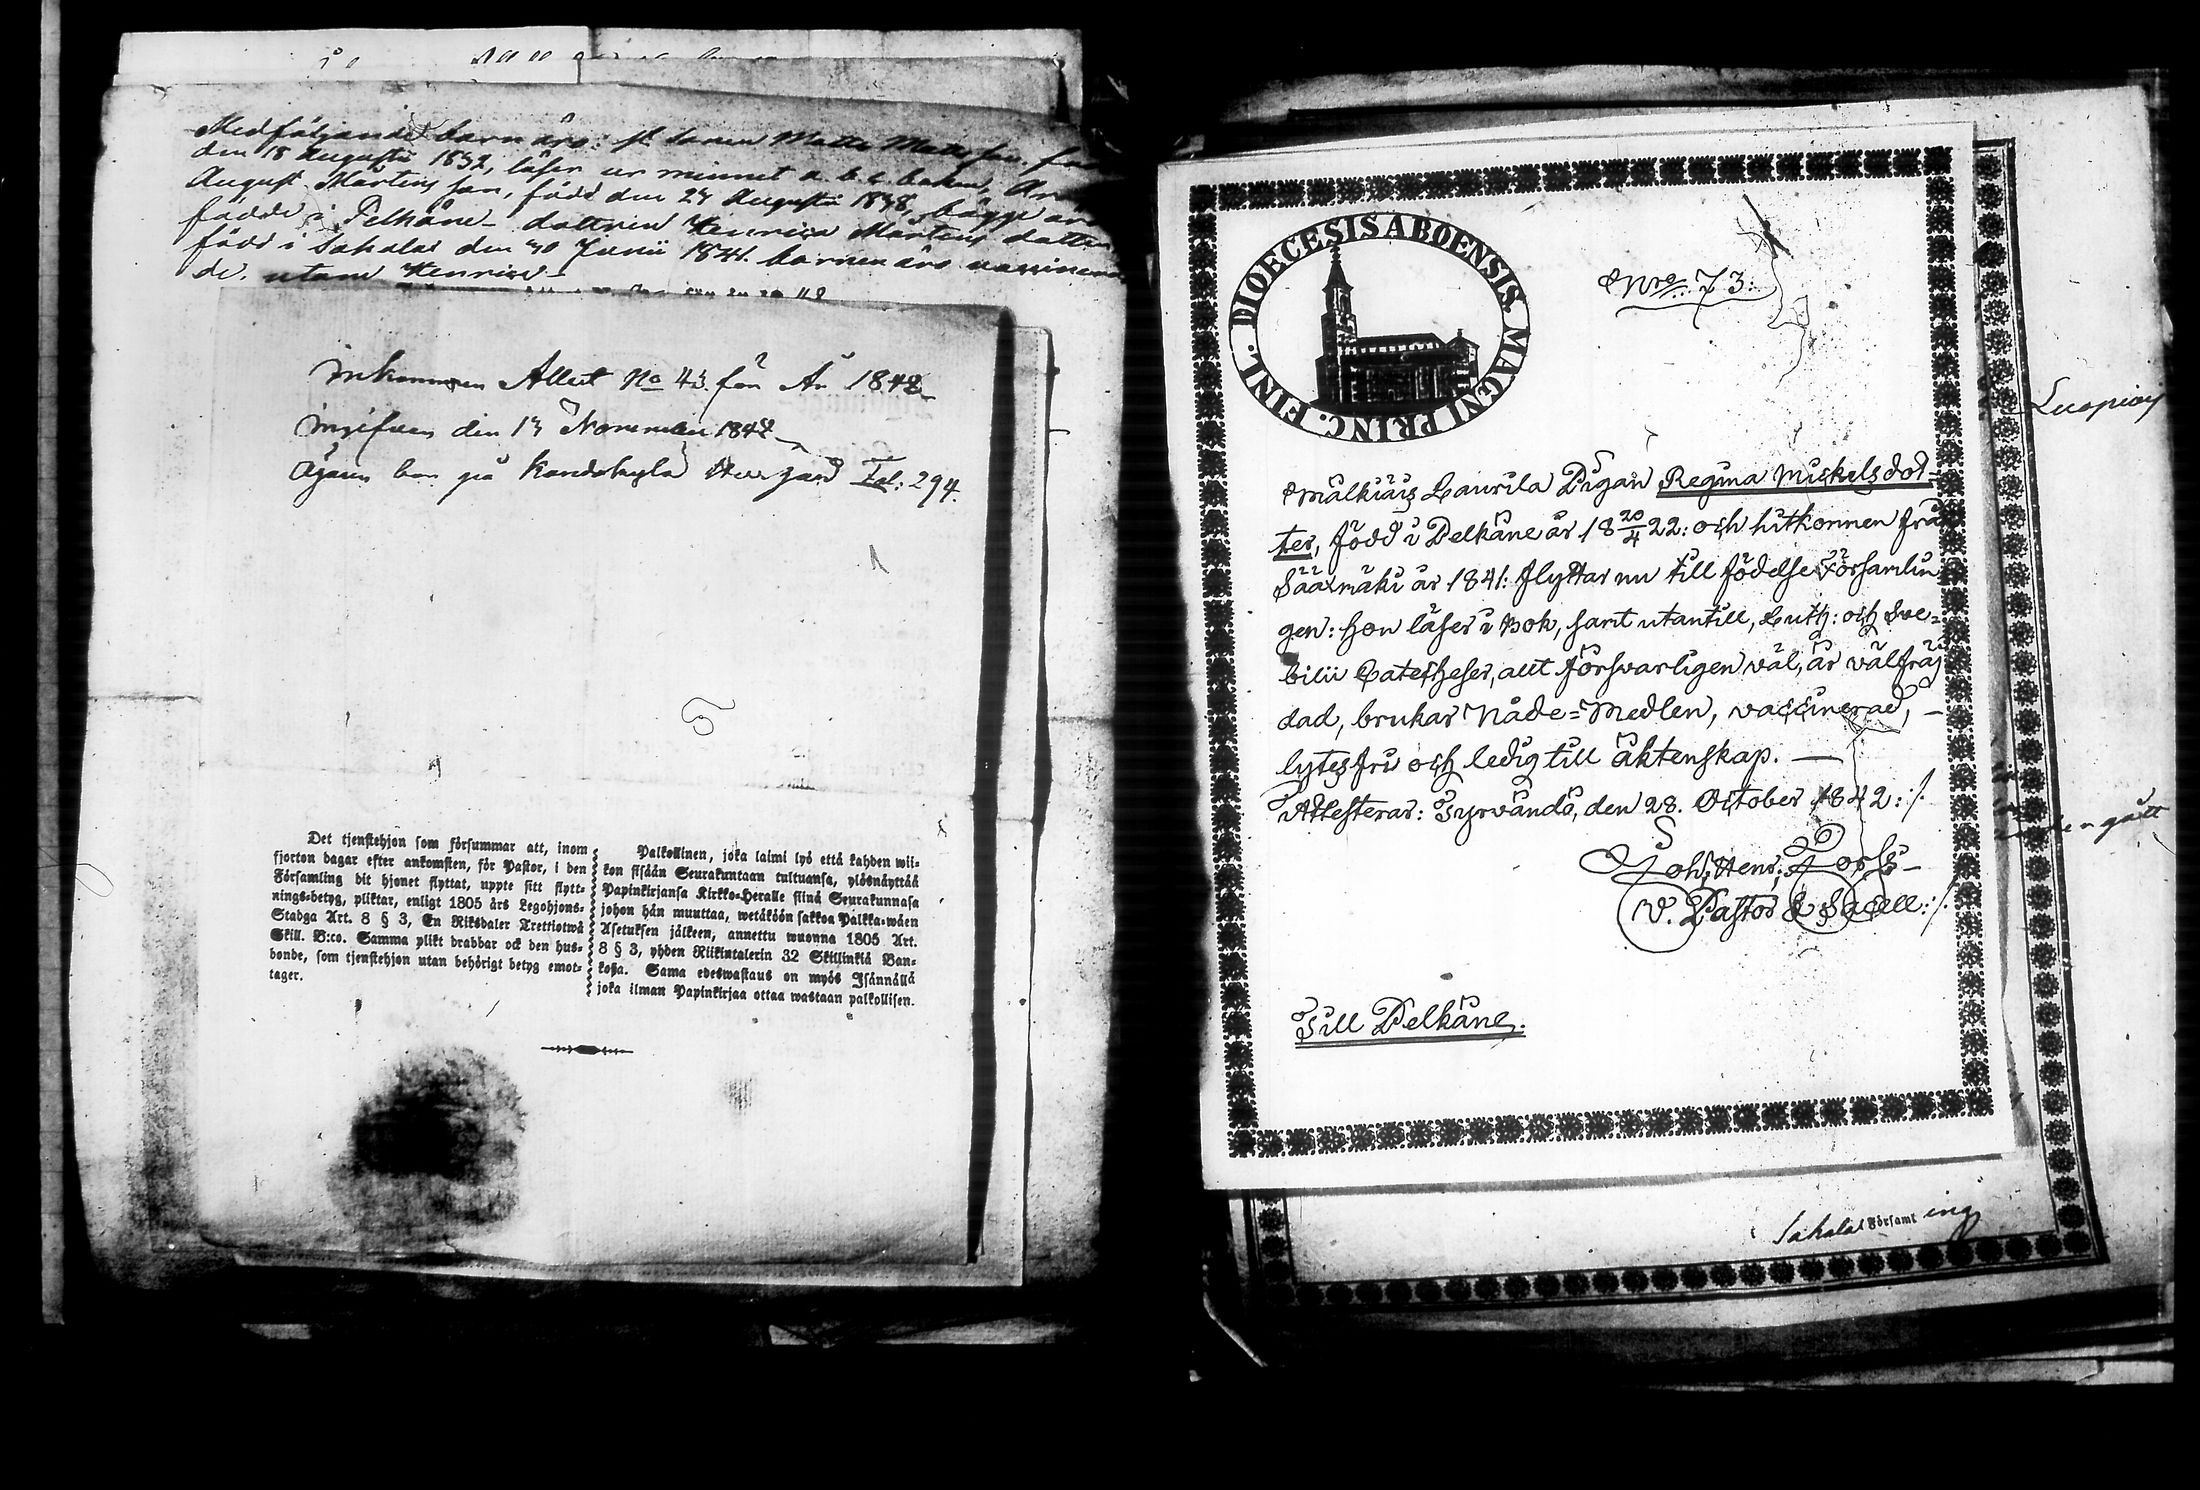 Medföljande barn äro: st. sonen Matts Mattsson född
den 18 Augusti 1832, läser ur minnet a. b. c. boken,
August Mårtensson, född den 24 Augusti 1838, bägge äro
födde i Pelkäne - dottren Henrica Mårtens dotter
född i Sahalax den 30 Junii 1841. barnen äro vaccinera
de. utom Henrica -
Inkommen Attest No 43. för År 1842
Ingifven den 13 November 1842
Ägaren bor på Fol: 294.
Det tjenstehjon som försummar att, inom
fjorton dagar efter ankomsten, för Pastor, i den
Församling dit hjonet flyttat, uppte sitt flytt-
nings-betyg, pliktar, enligt 1805 års Legohjons-
Stadga Art. 8 § 3, En Riksdaler Trettiotwå
Skill. B:co. Samma plikt drabbar ock den hus-
bonde, som tjenstehjon utan behörigt betyg emot-
tager.
Palkollinen, joka laimi lyö että kahden wii-
kon sisään Seurakuntaan tultuansa, ylösnäyttää
Papinkirjansa Kirkko-Heralle siinä Seurakunnasa
johon hän muuttaa, wetäköön sakkoa Palkka-wäen
Asetuksen jälkeen, annettu wuonna 1805 Art.
8 § 3, yhden Riikintalerin 32 Skillinkiä Ban-
kosa. Sama edeswastaus on myös Isännällä
joka ilman Papinkirjaa ottaa wastaan palkollisen.
DIOECESIS ABOENSIS. MAGNI PRINC. FINL.
Nro 73:
Mälkiäis Laurila Pigan Regina Mickelsdot-
ter, född i Pelkäne år 18 20/4 22: och hitkommen frå
Sääxmäki år 1841: flyttar nu till födelse Församlin
gen: hon läser i Bok, samt utantill, Luth: och Sve-
bilii Catecheser, allt försvarligen väl, är välfräj
dad, brukar Nåde-Medlen, vaccinerad, -
lytesfri och ledig till äktenskap. —
Attesterar: Tyrvändö, den 28. October 1842:/.
Joh: Henr:
V. Pastor & Sacell:/.
Till Pelkäne.
Luopiois
Sahalax Församl ing